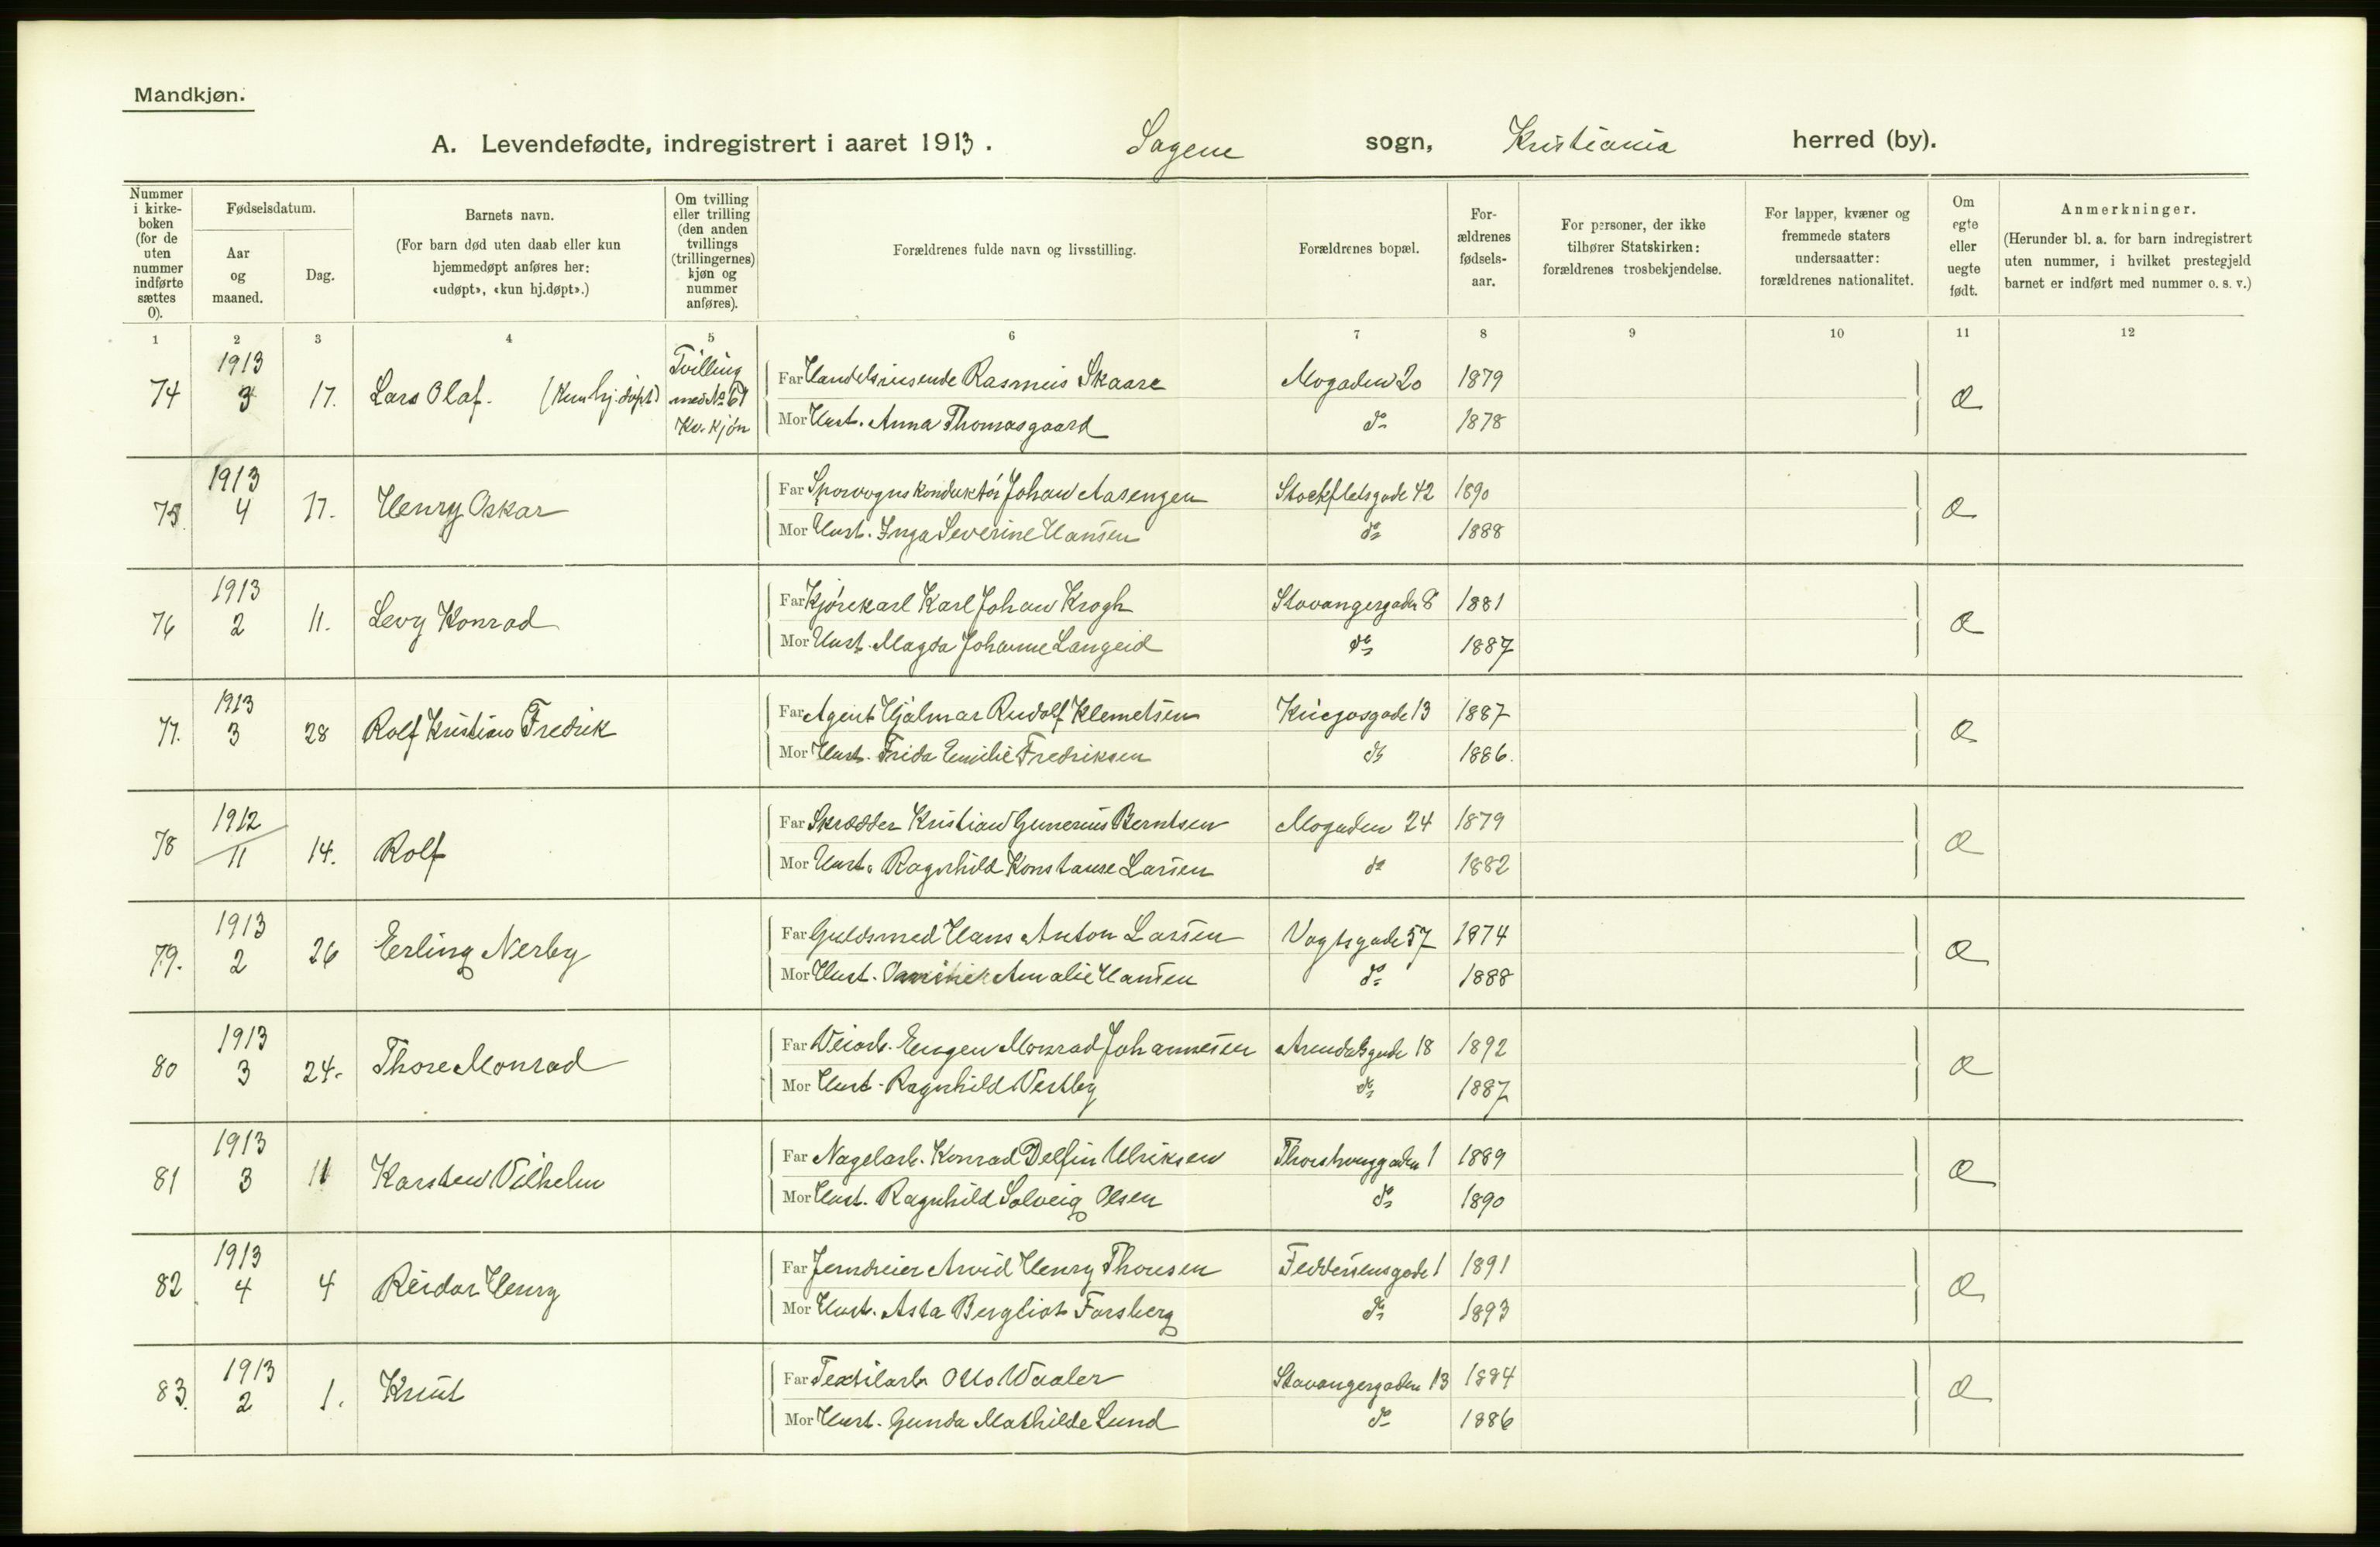 Mandkjøn.
A. Levendefødte, indregistrert i aaret 1913. Sagene sogn, Kristiania herred (by).
Nummer i kirke-boken (for de uten nummer indførte sættes 0).
Fødselsdatum.
Aar og maaned.
Dag.
Barnets navn.
(For barn død uten daab eller kun hjemmedøpt anføres her: «udøpt», «kun hj.døpt».)
Om tvilling eller trilling (den anden tvillings (trillingernes) kjøn og nummer anføres).
Forældrenes fulde navn og livsstilling.
Forældrenes bopæl.
For-ældrenes fødsels-aar.
For personer, der ikke tilhører Statskirken: forældrenes trosbekjendelse.
For lapper, kvæner og fremmede staters undersaatter: forældrenes nationalitet.
Om egte eller uegte født.
Anmerkninger.
(Herunder bl. a. for barn indregistrert uten nummer, i hvilket prestegjeld barnet er indført med nummer o. s. v.)
1 2 3 4 5 6 7 8 9 10 11 12
74 1913 3 17. Lars Olaf. (Kun hj. døpt) Tvilling med No 61 Kv. kjøn
Far Handelsreisende Rasmus Skaare Mogaden 20 1879
Mor Hust. Anna Thomasgaard do 1878
75. 1913 4 17. Henry Oskar
Far Sporvognskonduktør Johan Aasengen Stockfletsgade 42 1890
Mor Hust. Inga Severine Hansen do 1888
76 1913 2 11. Levy Konrad
Far Kjørekarl Karl Johan Krogh Stavangergaden 8 1881
Mor Hust. Magda Johanne Langeid do 1887
77. 1913 3 28 Rolf Kristian Fredrik
Far Agent Hjalmar Rudolf Klemetsen 13 1887
Mor Hust. Frida Emilie Fredriksen do 1886.
78 1912 11 14. Rolf
Far Skrædder Kristian Gunerius Berntsen Mogaden 24 1879
Mor Hust. Ragnhild Konstanse Larsen do 1882
79. 1913 2 26 Erling Nerby
Far Guldsmed Hans Anton Larsen Vogtsgade 57 1874
Mor Hust. Amalie Hansen do 1888
80 1913 3 24. Thore Monrad
Far Veiarb. Eugen Monrad Johannesen Arendalsgade 18 1892
Mor Hust. Ragnhild Vestby do 1887
81 1913 3 11 Karsten Vilhelm
Far Nagelarb. Konrad Delfin Ulriksen Thorshauggaden 1 1889
Mor Hust. Ragnhild Solveig Olsen do 1890
82 1913 4 4 Reidar Henry
Far Jerndreier Arvid Henry Thoresen Feddersensgade 1 1891
Mor Hust. Asta Bergliot Forsberg do 1893
83. 1913 2 1. Knut
Far Textilarb. Otto Waaler Stavangergaden 13 1884
Mor Hust. Gunda Mathilde Lund do 1886